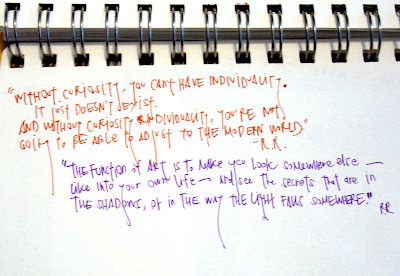 "WITHOUT CURIOSITY, YOU CAN'T HAVE INDIVIDUALITY.
IT JUST DOESN'T EXIST.
AND WITHOUT CURIOSITY & INDIVIDUALITY, YOU'RE NOT
GOING TO BE ABLE TO ADJUST TO THE MODERN WORLD."
- R.R.
"THE FUNCTION OF ART IS TO MAKE YOU LOOK SOMEWHERE ELSE —
LIKE INTO YOUR OWN LIFE — AND SEE THE SECRETS THAT ARE IN
THE SHADOWS, OR IN THE WAY THE LIGHT FALLS SOMEWHERE."
RR